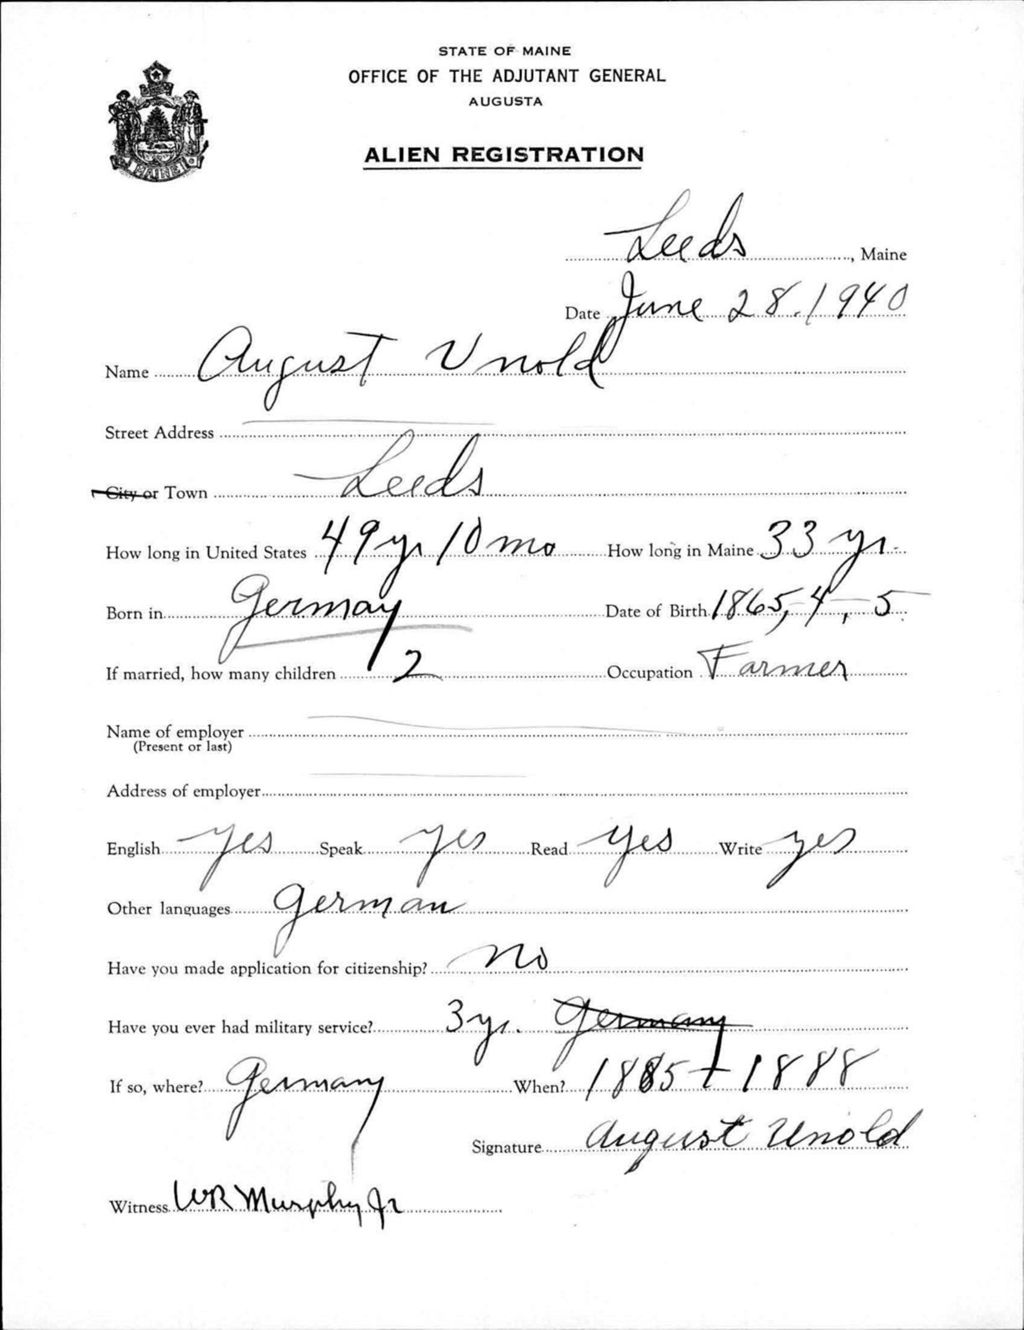 STATE OF MAINE
OFFICE OF THE ADJUTANT GENERAL
AUGUSTA
ALIEN REGISTRATION
MAINE
Leeds, Maine
Date June 28. 1940
Name August Unold
Street Address
City or Town Leeds
How long in United States 49 yr 10 mo How long in Maine 33 yr.
Born in Germay Date of Birth 1865, 4, 5
If married, how many children 2 Occupation Farmer
Name of employer
(Present or last)
Address of employer
English yes Speak yes Read yes Write yes
Other languages German
Have you made application for citizenship? No
Have you ever had military service? 3 yr. Germany
If so, where? Germany When? 1885 + 1888
Signature August Unold
Witness WR Murphy Jr